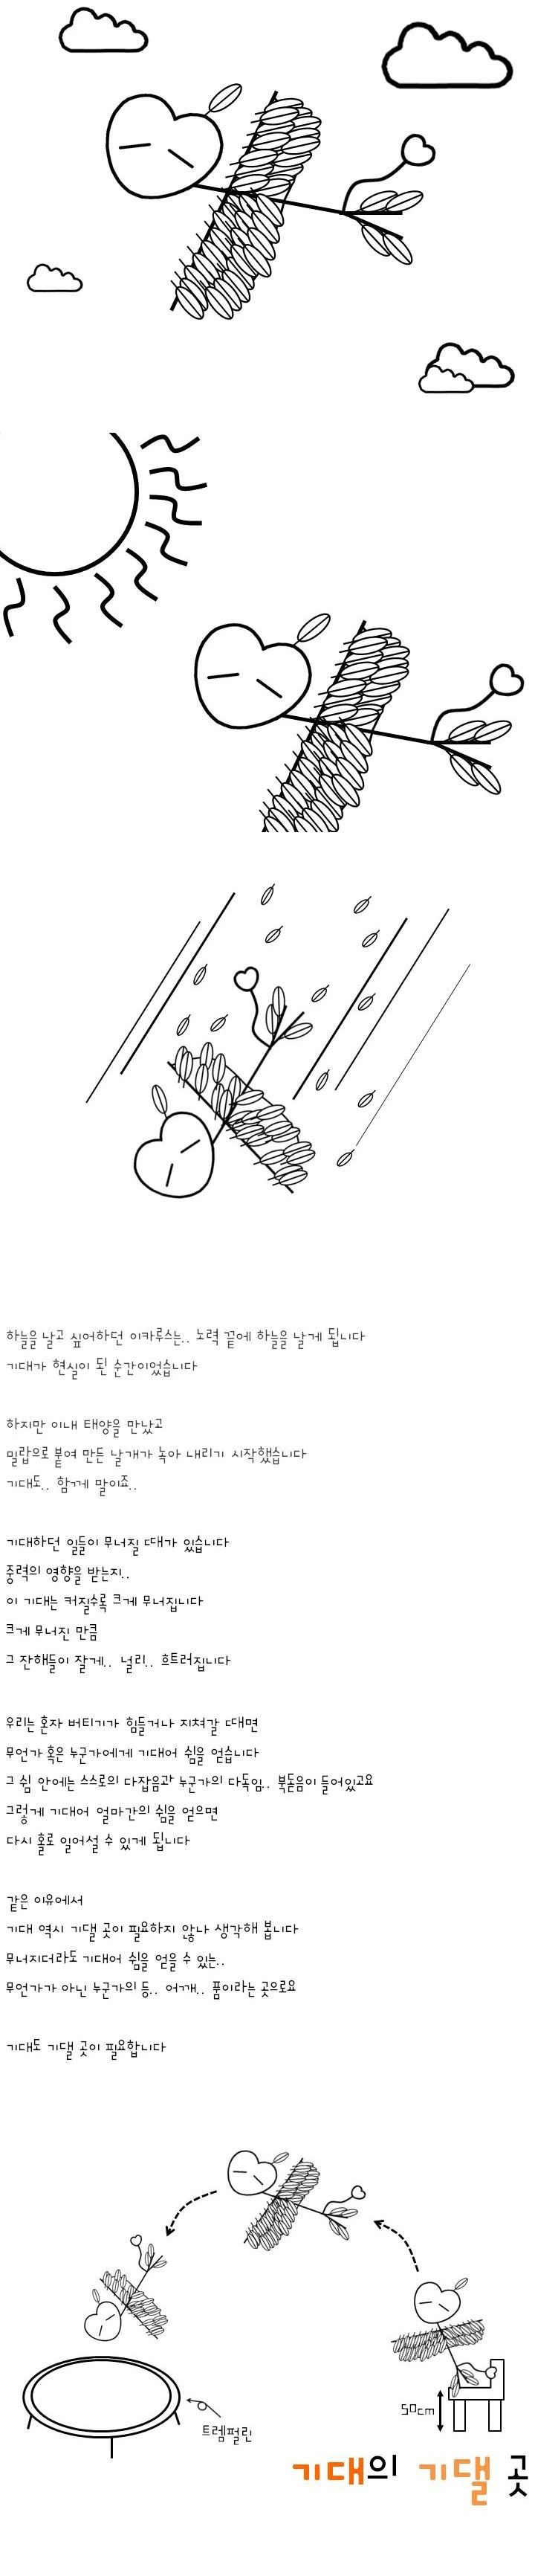 하늘을 날고 싶어하던 이카루스는.. 노력 끝에 하늘을 날게 됩니다
기대가 현실이 된 순간이었습니다
하지만 이내 태양을 만났고
밀랍으로 붙여 만든 날개가 녹아 내리기 시작했습니다
기대도.. 함께 말이죠..
기대하던 일들이 무너질 때가 있습니다
중력의 영향을 받는지..
이 기대는 커질수록 크게 무너집니다
크게 무너진 만큼
그 잔해들이 잘게.. 널리.. 흐트러집니다
우리는 혼자 버티기가 힘들거나 지쳐갈 때면
무언가 혹은 누군가에게 기대어 쉼을 얻습니다
그 쉼 안에는 스스로의 다잡음과 누군가의 다독임.. 북돋음이 들어있고요
그렇게 기대어 얼마간의 쉼을 얻으면
다시 홀로 일어설 수 있게 됩니다
같은 이유에서
기대 역시 기댈 곳이 필요하지 않나 생각해 봅니다
무너지더라도 기대어 쉼을 얻을 수 있는..
무언가가 아닌 누군가의 등.. 어깨.. 품이라는 곳으로요
기대도 기댈 곳이 필요합니다
50cm
트렘펄린
기대의 기댈 곳